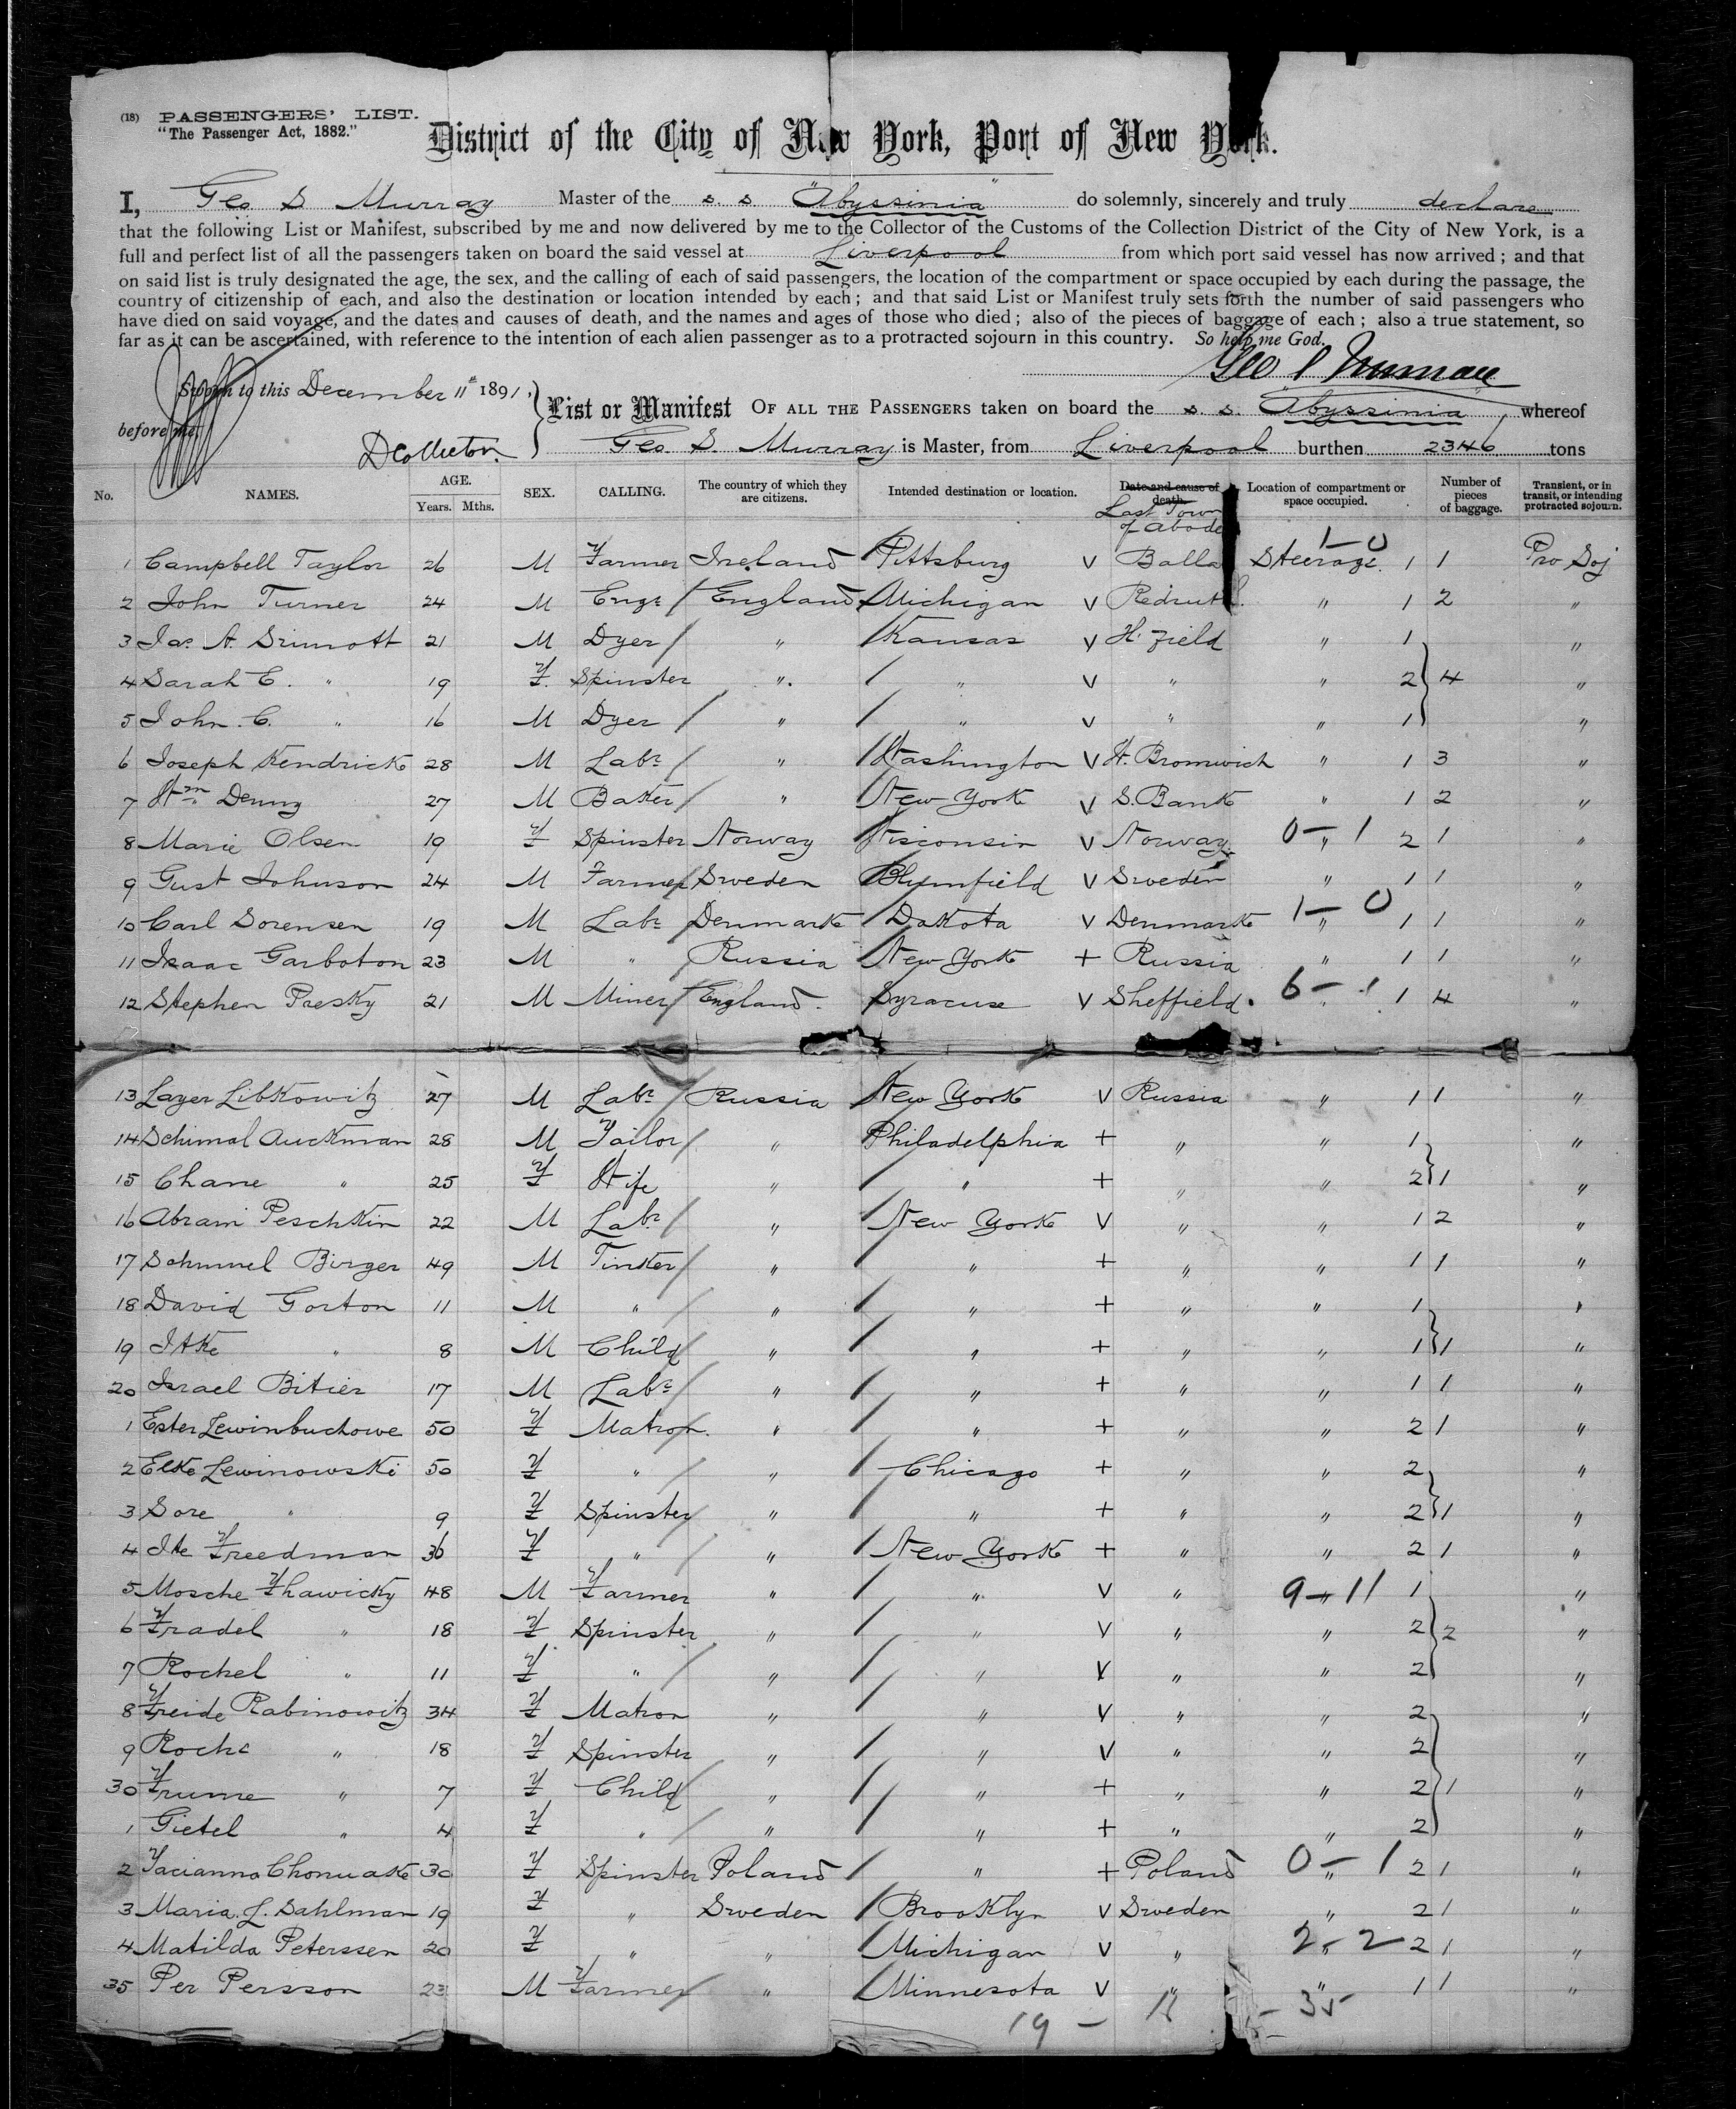 (18) PASSENGERS' LIST.
"The Passenger Act, 1882."
District of the City of New York, Port of New York.
I, Geo S Murray Master of the s. s "Abyssinia" do solemnly, sincerely and truly declare
that the following List or Manifest, subscribed by me and now delivered by me to the Collector of the Customs of the Collection District of the City of New York, is a
full and perfect list of all the passengers taken on board the said vessel at Liverpool from which port said vessel has now arrived; and that
on said list is truly designated the age, the sex, and the calling of each of said passengers, the location of the compartment or space occupied by each during the passage, the
country of citizenship of each, and also the destination or location intended by each; and that said List or Manifest truly sets forth the number of said passengers who
have died on said voyage, and the dates and causes of death, and the names and ages of those who died; also of the pieces of baggage of each; also a true statement, so
far as it can be ascertained, with reference to the intention of each alien passenger as to a protracted sojourn in this country. So help me God.
Geo S Murray
Sworn to this December 11th 1891,
before me,
List or Manifest OF ALL THE PASSENGERS taken on board the s. s. Abyssinia whereof
Geo. S. Murray is Master, from Liverpool burthen 2346 tons
No. NAMES. AGE. Years. Mths. SEX. CALLING. The country of which they are citizens. Intended destination or location. Date and cause of death. Last Town of abode Location of compartment or space occupied. Number of pieces of baggage. Transient, or in transit, or intending protracted sojourn.
1 Campbell Taylor 26 M Farmer Ireland Pittsburg v Balla Steerage 1-0 1 1 Pro Soj
2 John Turner 24 M Engr England Michigan v Redruth " 1 2 "
3 Jas. A. Srimott 21 M Dyer " Kansas v H. field " 1 "
4 Sarah E. " 19 F Spinster " " v " " 2 4 "
5 John C. " 16 M Dyer " " v " " 1 "
6 Joseph Kendrick 28 M Labr " Washington v W. Bromwich " 1 3 "
7 Wm Denny 27 M Baker " New York v S. Bank " 1 2 "
8 Marie Olsen 19 F Spinster Norway Wisconsin v Norway 0-1 " 2 1 "
9 Gust Johnson 24 M Farmer Sweden Blumfield v Sweden " 1 1 "
10 Carl Sorensen 19 M Labr Denmark Dakota v Denmark 1-0 " 1 1 "
11 Isaac Garboton 23 M " Russia New York + Russia " 1 1 "
12 Stephen Presky 21 M Miner England Syracuse v Sheffield 6-1 " 1 4 "
13 Layer Libkowitz 27 M Labr Russia New York v Russia " 1 1 "
14 Schimal Auckman 28 M Tailor " Philadelphia + " " 1 "
15 Chane " 25 F Wife " " + " " 2 1 "
16 Abram Peschkin 22 M Labr " New York v " " 1 2 "
17 Schmuel Birger 49 M Tinker " " + " " 1 1 "
18 David Gorton 11 M " " " + " " 1 "
19 Itke " 8 M Child " " + " " 1 1 "
20 Israel Bitier 17 M Labr " " + " " 1 1 "
1 Ester Lewinbuchowe 50 F Matron " " + " " 2 1 "
2 Elke Lewinowski 50 F " " Chicago + " " 2 "
3 Sore " 9 F Spinster " " + " " 2 1 "
4 Ite Freedman 36 F " " New York + " " 2 1 "
5 Mosche Fhawicky 48 M Farmer " " v " 9-11 " 1 "
6 Fradel " 18 F Spinster " " v " " 2 2 "
7 Rochel " 11 F " " " v " " 2 "
8 Freide Rabinowitz 34 F Matron " " v " " 2 "
9 Roche " 18 F Spinster " " v " " 2 "
30 Frume " 7 F Child " " + " " 2 1 "
1 Gietel " 4 F " " " + " " 2 "
2 Chonuake 30 F Spinster Poland " + Poland 0-1 " 2 1 "
3 Maria L. Dahlman 19 F " Sweden Brooklyn v Sweden " 2 1 "
4 Matilda Peterssen 20 F " " Michigan v " 2-2 " 2 1 "
35 Per Persson 23 M Farmer " Minnesota v " " 1 1 "
19 - 16 - 35